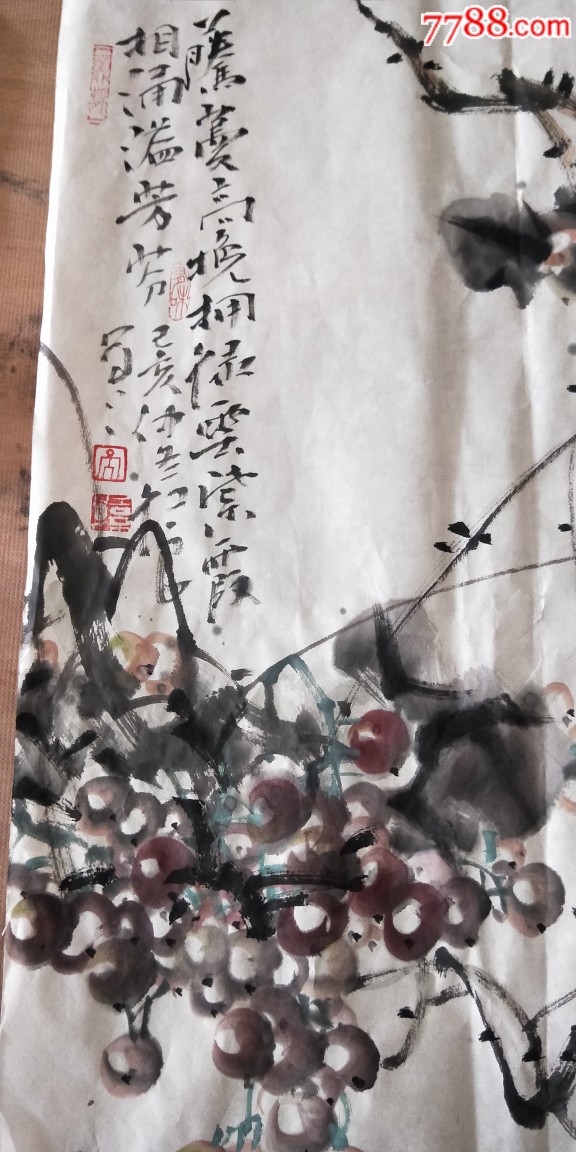 7788.com
藤蔓高挽拥绿雲紫霞
相涌溢芳芬 己亥仲冬
写之